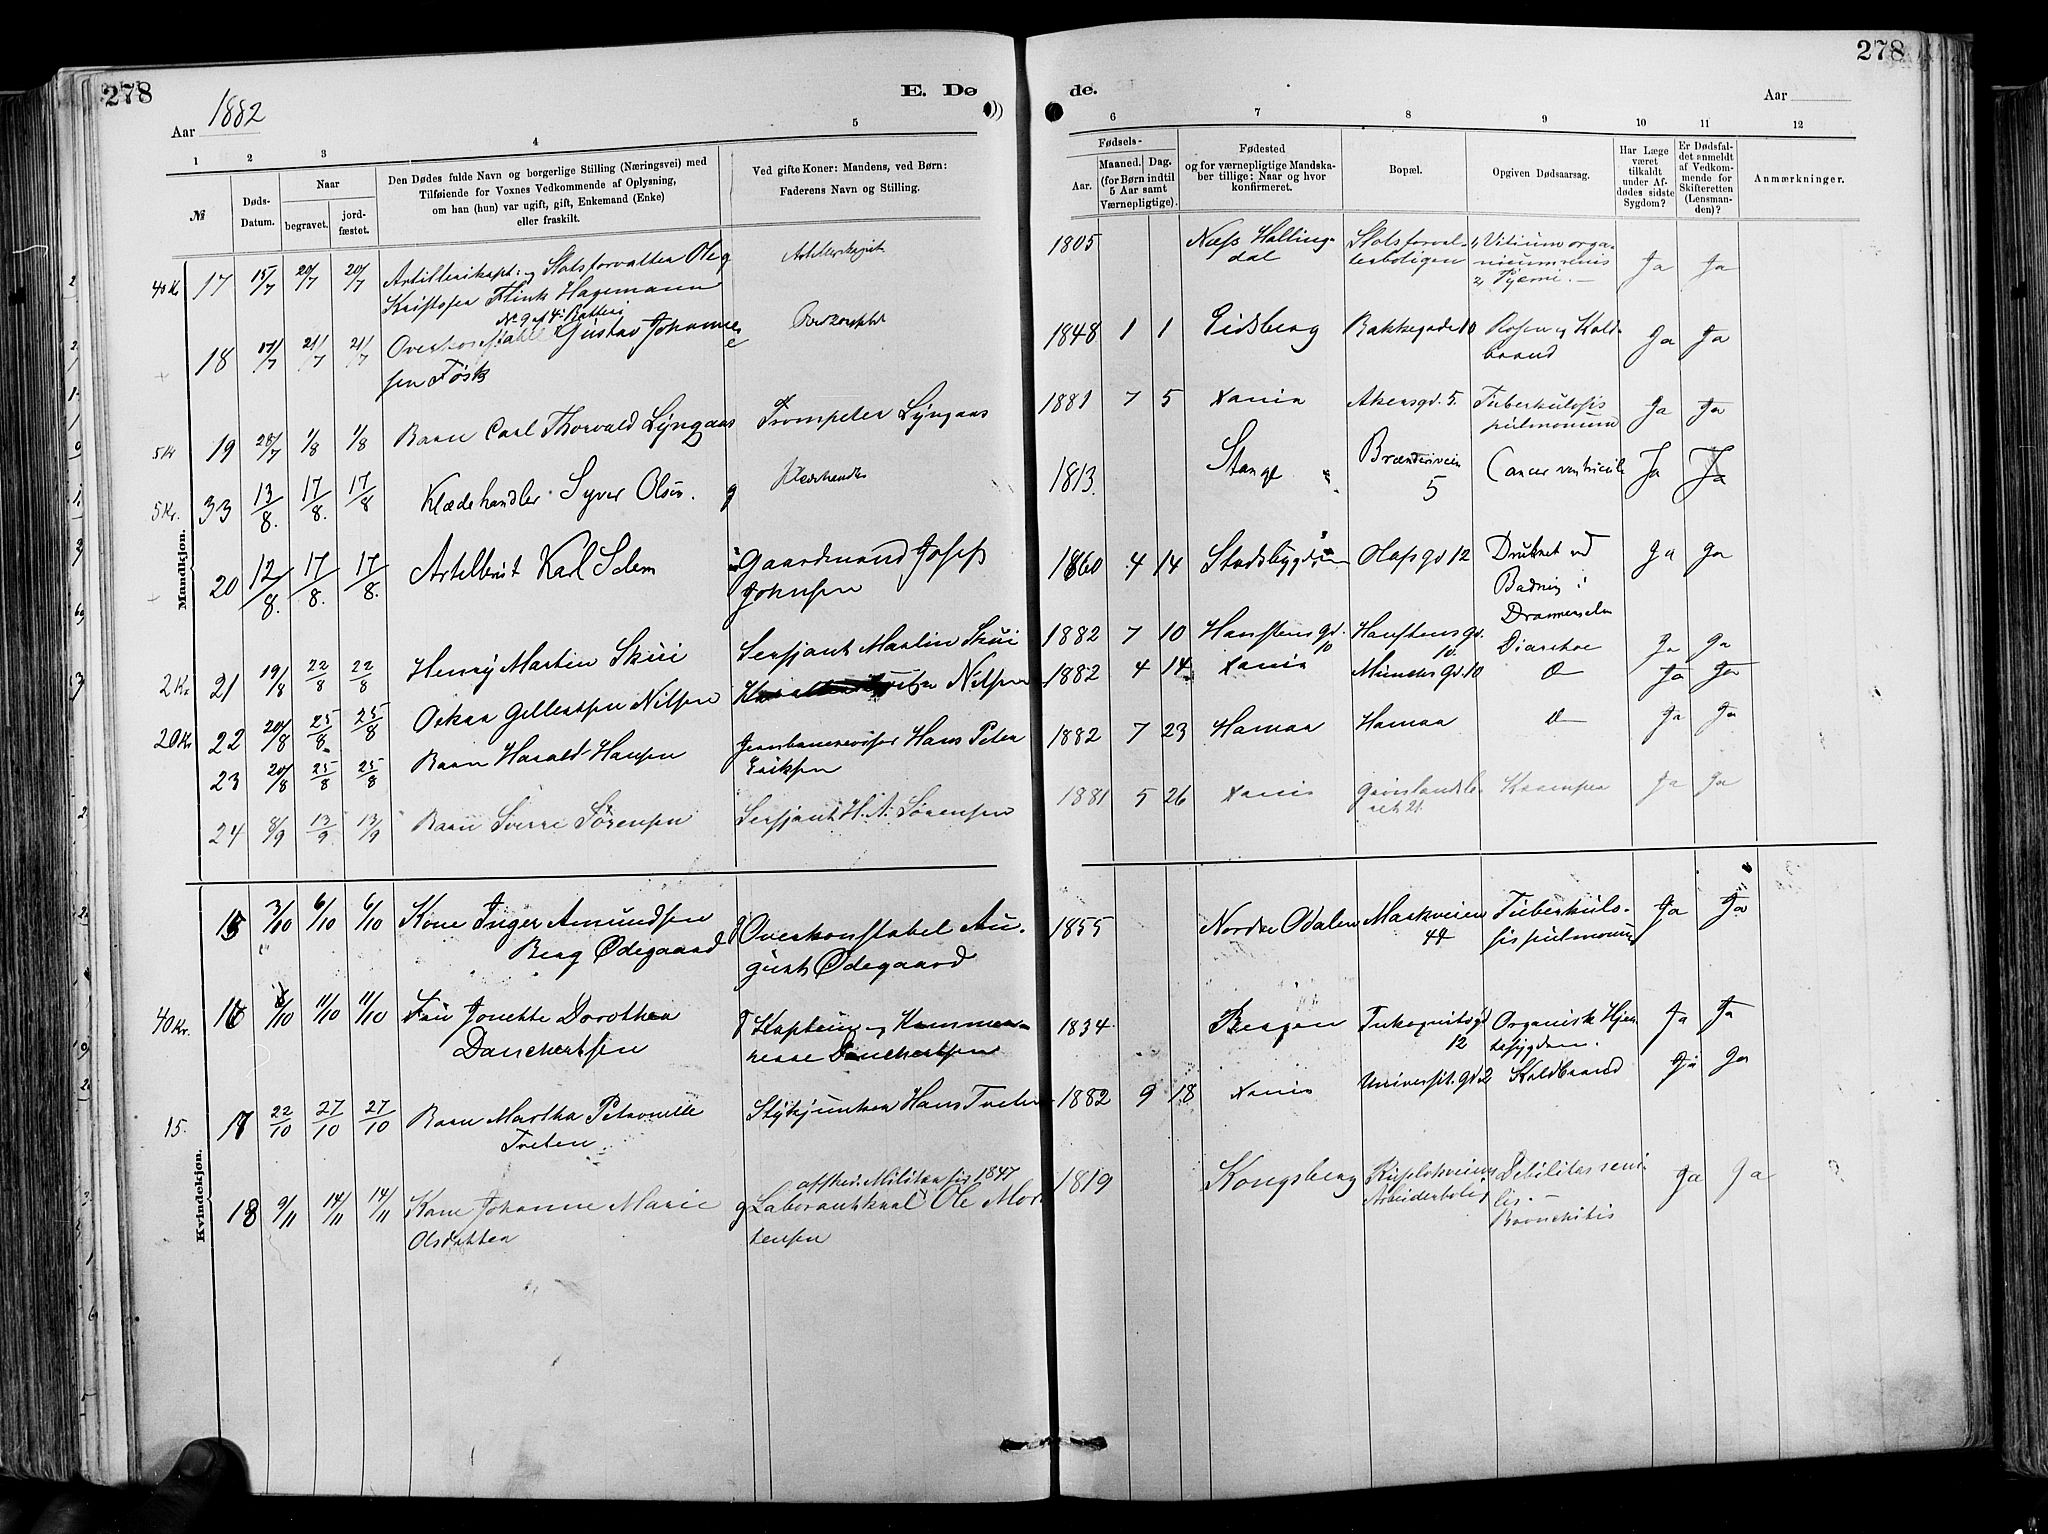 278
278
Aar 1882
E. Dø
de.
Aar
1
2
3
4
5
6
7
8
9
10
11
12
№
Døds-
Datum.
Naar
begravet.
jord-
fæstet.
Den Dødes fulde Navn og borgerlige Stilling (Næringsvei) med
Tilføiende for Voxnes Vedkommende af Oplysning,
om han (hun) var ugift, gift, Enkemand (Enke)
eller fraskilt.
Ved gifte Koner: Mandens, ved Børn:
Faderens Navn og Stilling.
Fødsels-
Aar.
Maaned.
Dag.
(for Børn indtil
5 Aar samt
Værnepligtige).
Fødested
og for værnepligtige Mandska-
ber tillige: Naar og hvor
konfirmeret.
Bopæl.
Opgiven Dødsaarsag.
Har Læge
været
tilkaldt
under Af-
dødes sidste
Sygdom?
Er Dødsfal-
det anmeldt
af Vedkom-
mende for
Skifteretten
(Lensman-
den)?
Anmærkninger.
Mandkjøn.
40 Kr 17 15/7 20/7 20/7 Artillerikapt: og Slotsforvalter Ole g
Kristofer Flink Hagemann
1805 Næss Halling-
dal
Slotsforval-
terboligen
1, Vitium orga-
nicum renis
2, Pyæmi. —
Ja Ja
No 9 af 4: Batteri
18 17/7 21/7 21/7 Overkonstabel Gustav Johanne
sen Fosk
1848 1 1 Eidsberg Bakkegade 10 Rosen og Kold-
brand
Ja Ja
5 Kr 19 28/7 1/8 1/8 Barn Carl Thorvald Lyngaas Trompeter Lyngaas
1881 7 5 Xania Akersgd. 5. Tuberkulosis
pulmonum
Ja Ja
5 Kr. 33 13/8. 17/8. 17/8 Klædehandler Syver Olsen. g
1813. Stange Brænderiveien
5
Cancer ventriculi Ja Ja
20 12/8. 17/8. 17/8. Artillerist Karl Solem u Gaardmand Josef
Johnsen
1860 4 14 Stadsbygden Olafsgd 12 Druknet ved
Badning i
Drammenselven
Ja Ja
2 Kr 21 19/8 22/8 22/8 Henry Martin Skui Sersjant Martin Skui
1882 7 10 Hausmansgd. 10 Hausmansgd. 10. Diarrhoe Ja Ja
20 Kr 22 20/8 25/8 25/8 Oskar Gellertsen Nilsen Nilsen
1882 4 14 Xania Munchs Gd. 10 Do Ja Ja
23 20/8 25/8 25/8 Barn Harald Hansen Jernbanerevisor Hans Peter
Eriksen
1882 7 23 Hamar Hamar Do Ja Ja
24 8/9 13/9 13/9 Barn Sverre Sørensen Sersjant H. A. Sørensen
1881 5 26 Xania Grønlandsle-
ret 21.
Krampe Ja Ja
Kvindekjøn.
15 3/10 6/10 6/10 Kone Inger Amundsen
Berg Ødegaard
g Overkonstabel Au-
gust Ødegaard
1855 Nordre Odalen Markveien
44
Tuberkulo-
sis pulmonum
Ja Ja
40 Kr. 16 11/10 11/10 Fru Jonette Dorothea
Danchertsen
g Kaptein og Kammer-
herre Danchertsen
1834 Bergen
12
Organisk Hjer-
tesygdom.
Ja Ja
15. 17 22/10 27/10 27/10 Barn Martha Petronelle
Tveten
Stykjunker Hans Tveten
1882 9 18 Xania Universit. gd. 2 Koldbrand Ja Ja
18 9/11 14/11 14/11 Kone Johanne Marie
Olsdatter
afsked. Militær fra 1847
g Laborantkarl Ole Mor-
tensen
1819 Kongsberg
Arbeiderbolig
Debilitas seni-
lis. —
Bronchitis
Ja Ja